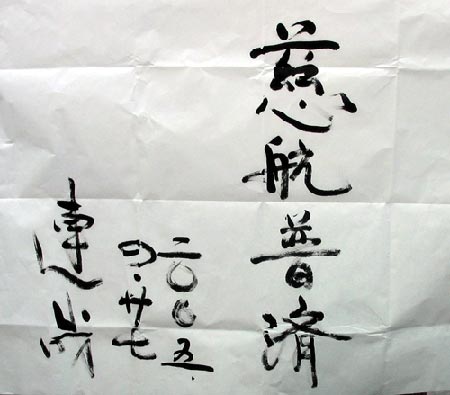 慈航普濟
二〇〇五
四·廿七
連